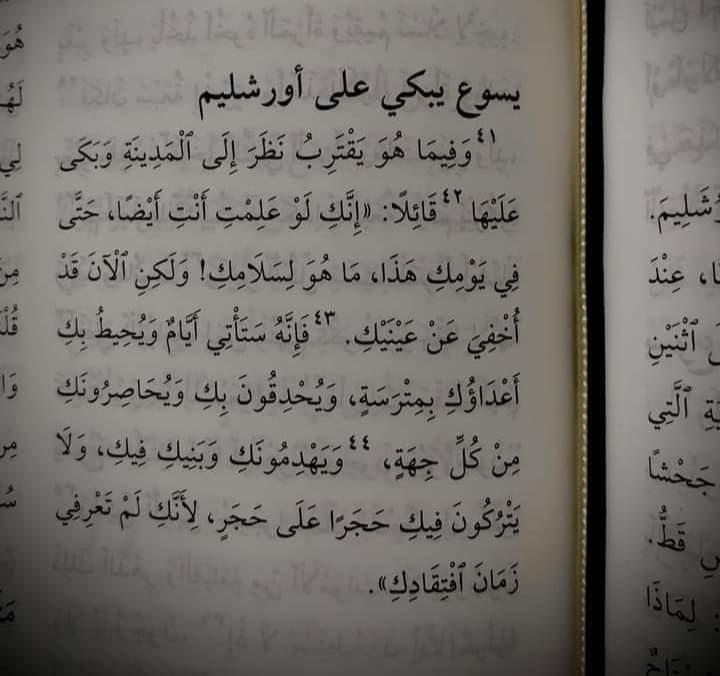 يسوع يبكي على أورشليم
٤١ وَفِيمَا هُوَ يَقْتَرِبُ نَظَرَ إِلَى ٱلْمَدِينَةِ وَبَكَى
عَلَيْهَا ٤٢ قَائِلًا: «إِنَّكِ لَوْ عَلِمْتِ أَنْتِ أَيْضًا، حَتَّى
فِي يَوْمِكِ هَذَا، مَا هُوَ لِسَلَامِكِ! وَلَكِنِ ٱلْآنَ قَدْ
أُخْفِيَ عَنْ عَيْنَيْكِ. ٤٣ فَإِنَّهُ سَتَأْتِي أَيَّامٌ وَيُحِيطُ بِكِ
أَعْدَاؤُكِ بِمِتْرَسَةٍ، وَيُحْدِقُونَ بِكِ وَيُحَاصِرُونَكِ
مِنْ كُلِّ جِهَةٍ، ٤٤ وَيَهْدِمُونَكِ وَبَنِيكِ فِيكِ، وَلَا
يَتْرُكُونَ فِيكِ حَجَرًا عَلَى حَجَرٍ، لِأَنَّكِ لَمْ تَعْرِفِي
زَمَانَ ٱفْتِقَادِكِ».
عِنْدَ
ٱثْنَيْنِ
ٱلَّتِي
جَحْشًا
قَطُّ.
لِمَاذَا